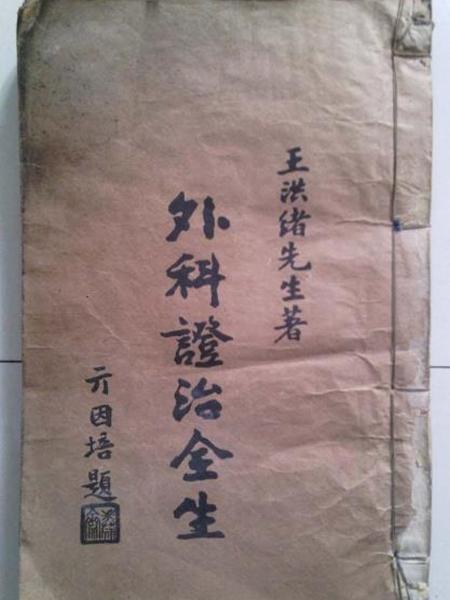 王洪绪先生著
外科證治全生
亓因培題